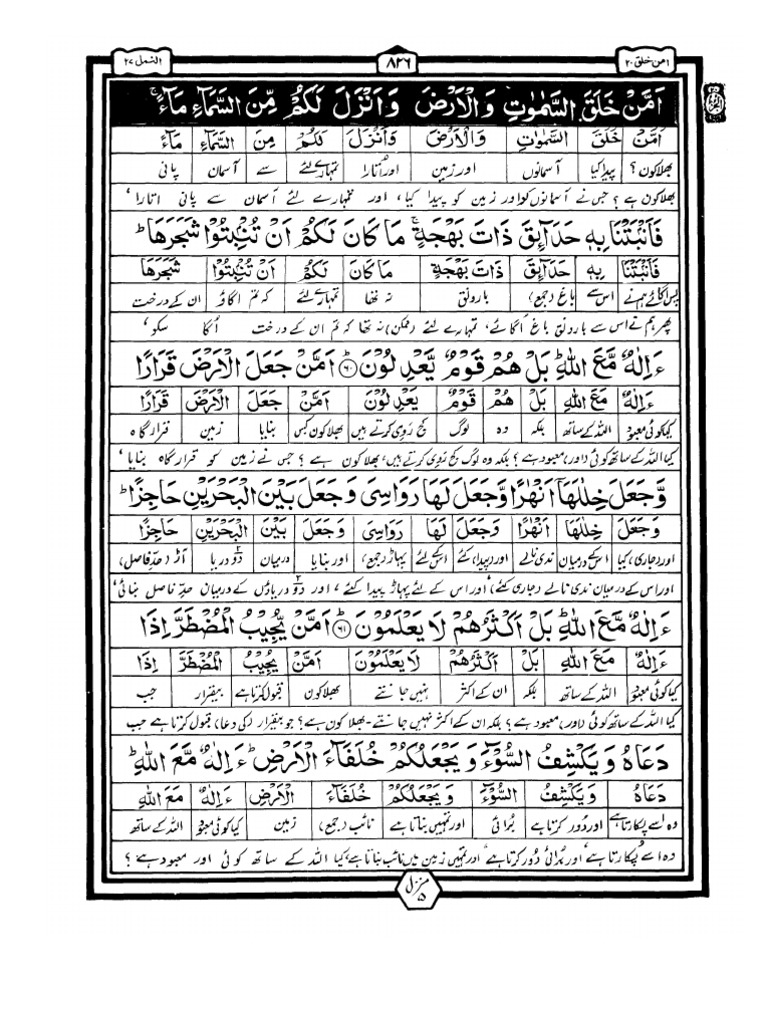 امن خلق ٢٠
٨٢٦
النمل ٢٧
اَمَّنْ خَلَقَ السَّمٰوٰتِ وَالْاَرْضَ وَاَنْزَلَ لَكُمْ مِّنَ السَّمَآءِ مَآءً ۚ
اَمَّنْ خَلَقَ السَّمٰوٰتِ وَالْاَرْضَ وَاَنْزَلَ لَكُمْ مِنَ السَّمَآءِ مَآءً
بھلا کون؟ پیدا کیا آسمانوں اور زمین اور اتارا تمہارے لئے سے آسمان پانی
بھلا کون ہے؟ جس نے آسمانوں کو اور زمین کو پیدا کیا، اور تمہارے لئے آسمان سے پانی اتارا،
فَاَنْۢبَتْنَا بِهٖ حَدَآئِقَ ذَاتَ بَهْجَةٍ ۚ مَا كَانَ لَكُمْ اَنْ تُنْۢبِتُوْا شَجَرَهَا ؕ
فَاَنْۢبَتْنَا بِهٖ حَدَآئِقَ ذَاتَ بَهْجَةٍ مَا كَانَ لَكُمْ اَنْ تُنْۢبِتُوْا شَجَرَهَا
پس اگائے ہم نے اس سے باغ (جمع) بارونق نہ تھا تمہارے لئے کہ تم اگاؤ ان کے درخت
پھر ہم نے اس سے بارونق باغ اگائے، تمہارے لئے (ممکن) نہ تھا کہ تم ان کے درخت اگا سکو،
ءَاِلٰهٌ مَّعَ اللّٰهِ ؕ بَلْ هُمْ قَوْمٌ يَّعْدِلُوْنَ ؕ﴿٦٠﴾ اَمَّنْ جَعَلَ الْاَرْضَ قَرَارًا
ءَاِلٰهٌ مَّعَ اللّٰهِ بَلْ هُمْ قَوْمٌ يَعْدِلُوْنَ اَمَّنْ جَعَلَ الْاَرْضَ قَرَارًا
کیا کوئی معبود اللہ کے ساتھ بلکہ وہ لوگ کج روی کرتے ہیں بھلا کون کس بنایا زمین قرار گاہ
کیا اللہ کے ساتھ کوئی (اور) معبود ہے؟ بلکہ وہ لوگ کج روی کرتے ہیں، بھلا کون ہے؟ جس نے زمین کو قرار گاہ بنایا،
وَّجَعَلَ خِلٰلَهَاۤ اَنْهٰرًا وَّجَعَلَ لَهَا رَوَاسِىَ وَجَعَلَ بَيْنَ الْبَحْرَيْنِ حَاجِزًا ؕ
وَجَعَلَ خِلٰلَهَا اَنْهٰرًا وَجَعَلَ لَهَا رَوَاسِىَ وَجَعَلَ بَيْنَ الْبَحْرَيْنِ حَاجِزًا
اور (جاری) کیا اسکے درمیان ندی نالے اور (پیدا) کئے اسکے لئے پہاڑ (جمع) اور بنایا درمیان دو دریا آڑ (حد فاصل)
اور اس کے درمیان ندی نالے (جاری کئے) اور اس کے لئے پہاڑ پیدا کئے، اور دو دریاؤں کے درمیان حد فاصل بنائی،
ءَاِلٰهٌ مَّعَ اللّٰهِ ؕ بَلْ اَكْثَرُهُمْ لَا يَعْلَمُوْنَ ؕ﴿٦١﴾ اَمَّنْ يُّجِيْبُ الْمُضْطَرَّ اِذَا
ءَاِلٰهٌ مَّعَ اللّٰهِ بَلْ اَكْثَرُهُمْ لَا يَعْلَمُوْنَ اَمَّنْ يُجِيْبُ الْمُضْطَرَّ اِذَا
کیا کوئی معبود اللہ کے ساتھ بلکہ ان کے اکثر نہیں جانتے بھلا کون قبول کرتا ہے بیقرار جب
کیا اللہ کے ساتھ کوئی (اور) معبود ہے؟ بلکہ ان کے اکثر نہیں جانتے۔ بھلا کون ہے؟ جو بیقرار (کی دعا) قبول کرتا ہے جب
دَعَاهُ وَيَكْشِفُ السُّوْٓءَ وَيَجْعَلُكُمْ خُلَفَآءَ الْاَرْضِ ؕ ءَاِلٰهٌ مَّعَ اللّٰهِ ؕ
دَعَاهُ وَيَكْشِفُ السُّوْٓءَ وَيَجْعَلُكُمْ خُلَفَآءَ الْاَرْضِ ءَاِلٰهٌ مَعَ اللّٰهِ
وہ اسے پکارتا ہے اور دور کرتا ہے برائی اور تمہیں بناتا ہے نائب (جمع) زمین کیا کوئی معبود اللہ کے ساتھ
وہ اسے پکارتا ہے، اور برائی دور کرتا ہے، اور تمہیں زمین میں نائب بناتا ہے، کیا اللہ کے ساتھ کوئی اور معبود ہے؟
منزل ٥